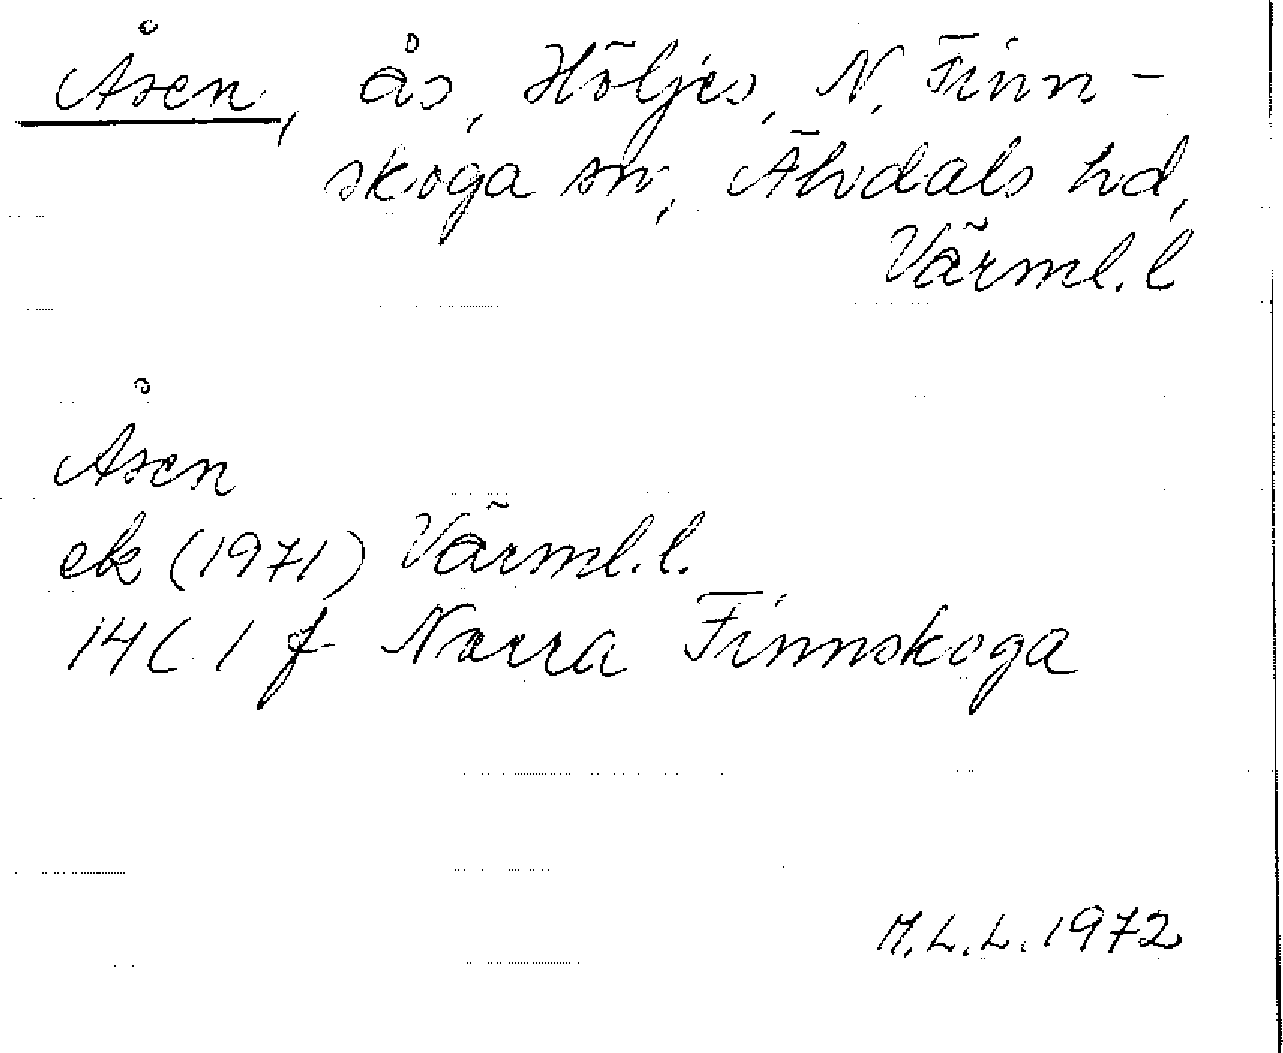 Åsen, ås, Höljes, N. Finn-
skoga sn, Älvdals hd,
Värml. l
Åsen
ek (1971) Värml. l.
14C 1 f Norra Finnskoga
M.L.L. 1972